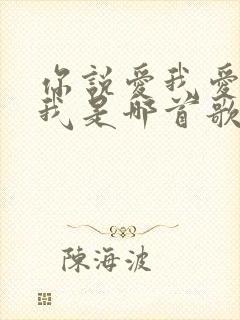 你說愛我愛
我是哪首歌
陳海波